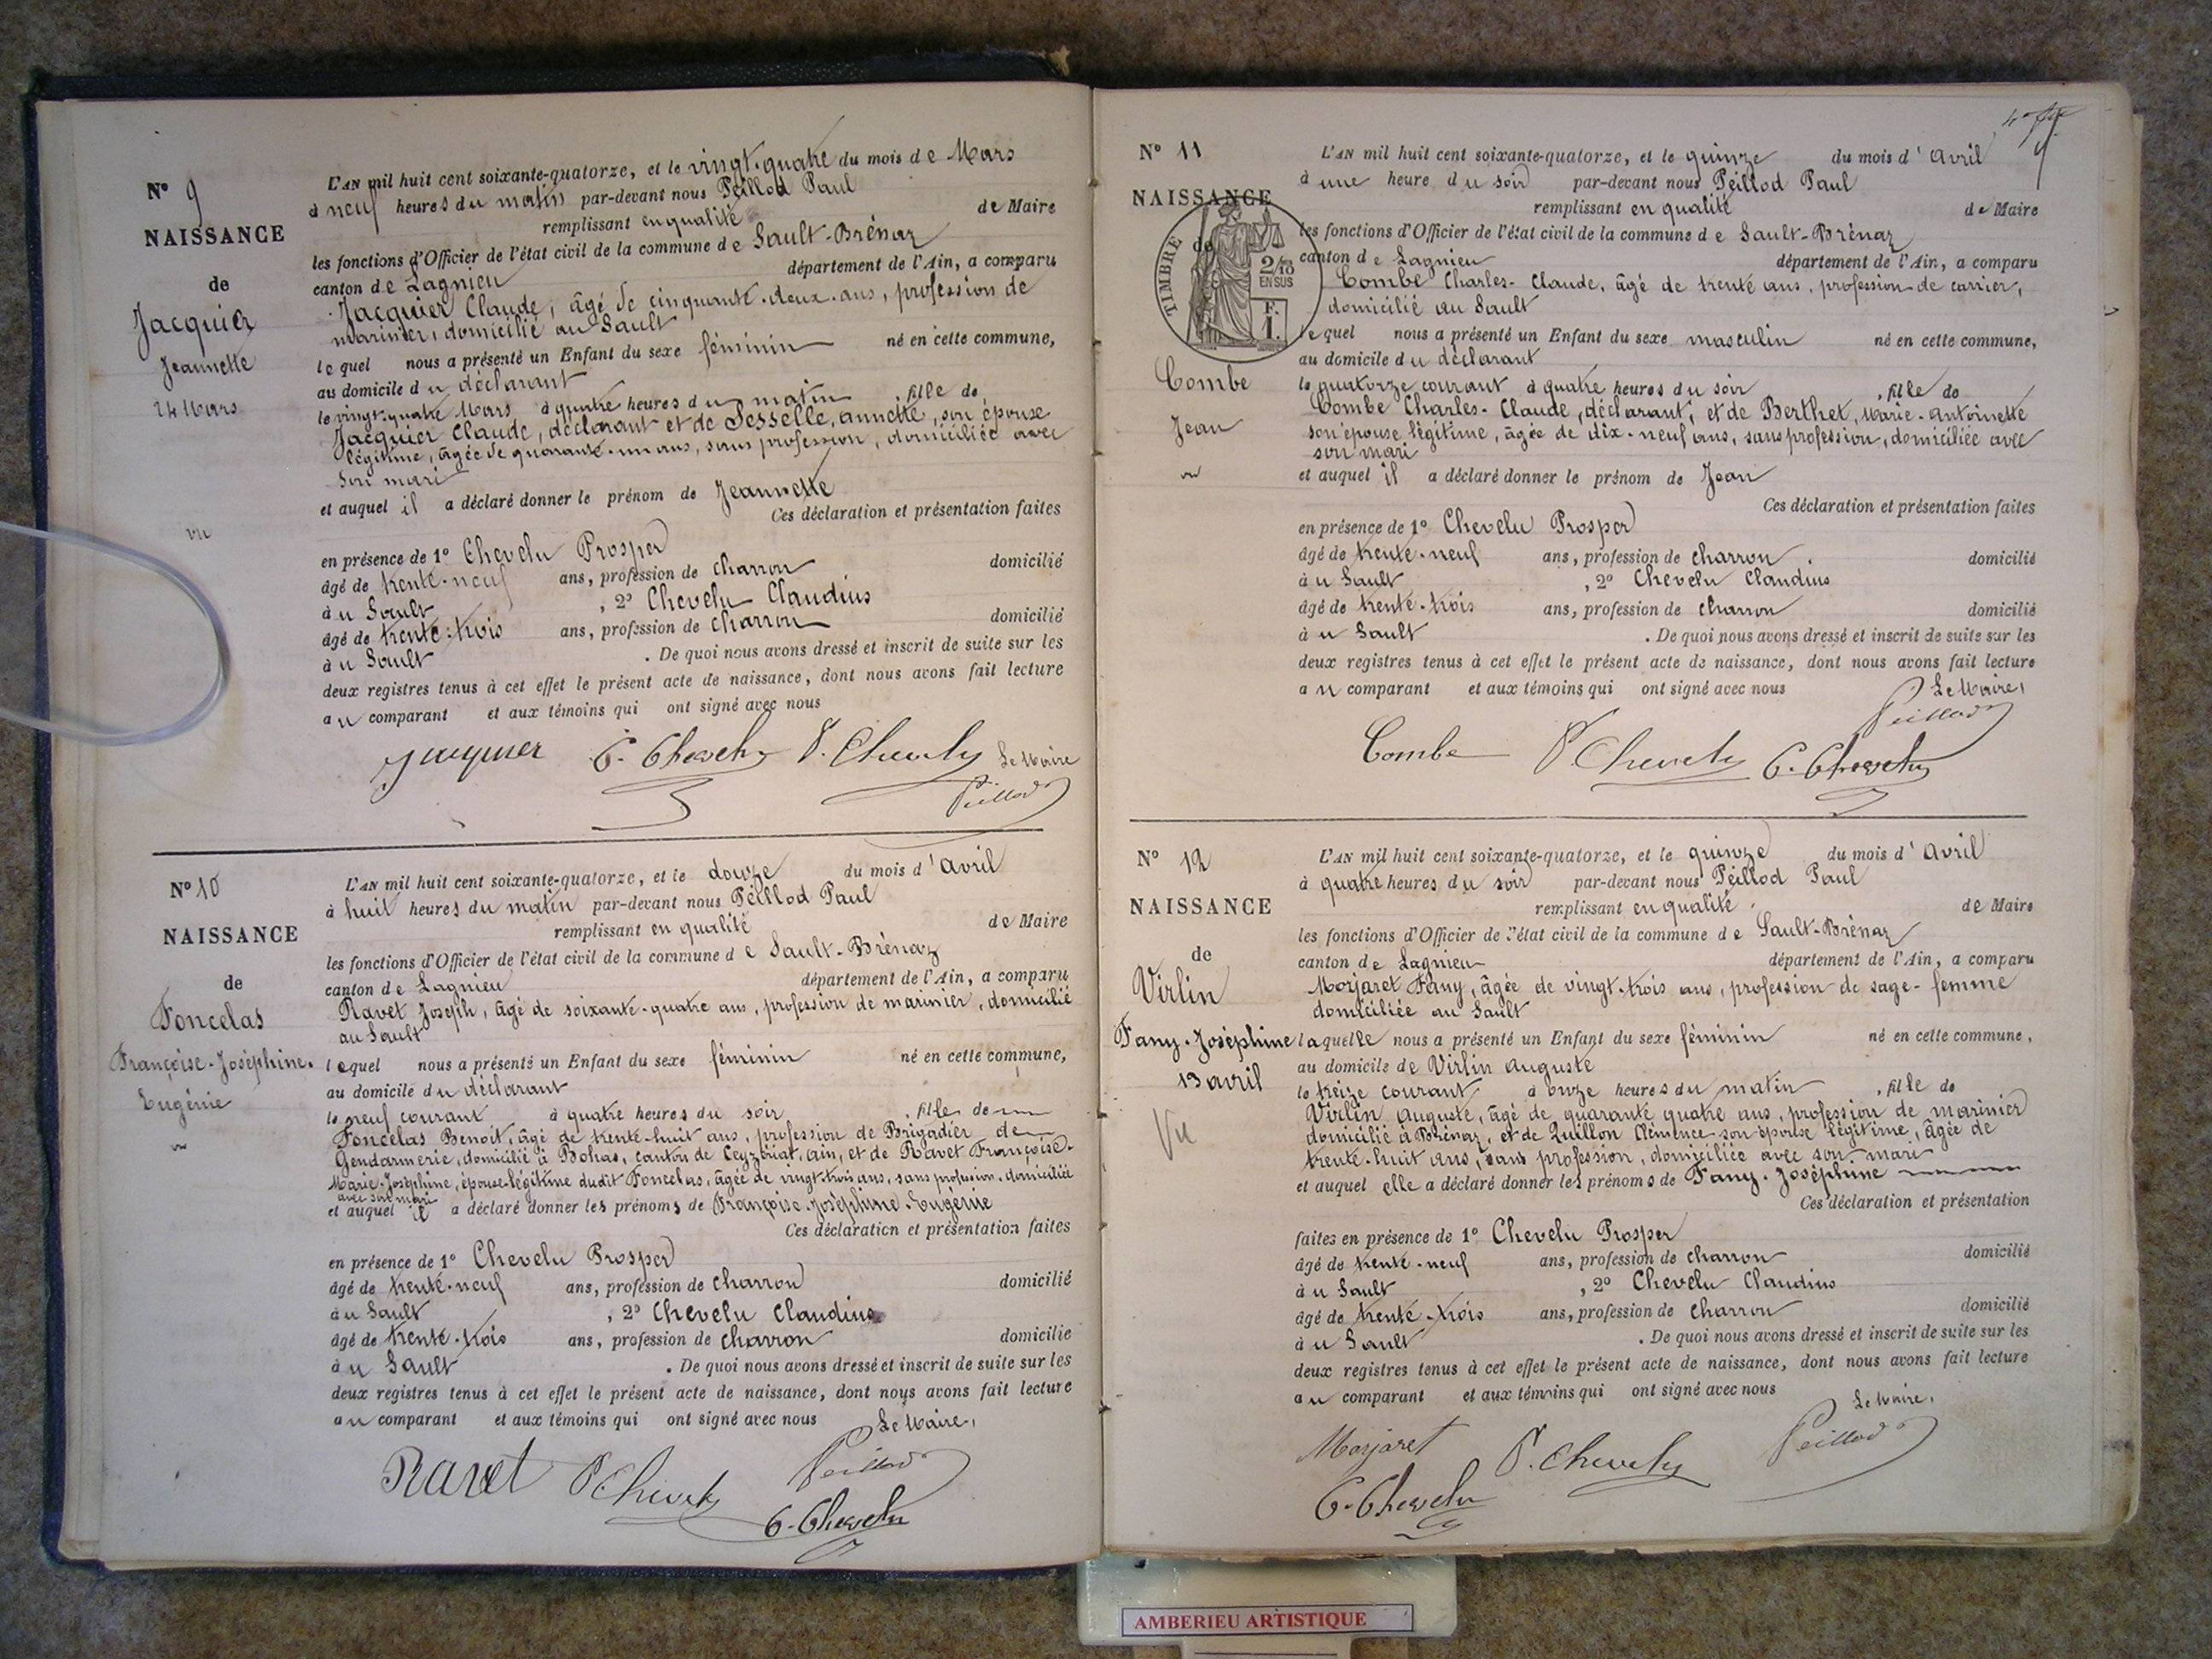 N° 9
NAISSANCE
de
Jacquier
Jeannette
24 Mars
vu
L'AN mil huit cent soixante-quatorze, et le vingt-quatre du mois de Mars
à neuf heures du matin par-devant nous Peillod Paul
remplissant en qualité de Maire
les fonctions d'Officier de l'état civil de la commune de Sault-Brénaz
canton de Lagnieu département de l'Ain, a comparu
Jacquier Claude, âgé de cinquante-deux ans, profession de
marinier, domicilié au Sault
lequel nous a présenté un Enfant du sexe féminin né en cette commune,
au domicile du déclarant
le vingt-quatre Mars à quatre heures du matin, fille de
Jacquier Claude, déclarant et de Sesselle, annette, son épouse
légitime, âgée de quarante-un ans, sans profession, domiciliée avec
son mari
et auquel il a déclaré donner le prénom de Jeannette
Ces déclaration et présentation faites
en présence de 1° Chevelu Prosper
âgé de trente-neuf ans, profession de charron domicilié
à u Sault , 2° Chevelu Claudius
âgé de trente-trois ans, profession de charron domicilié
à u Sault . De quoi nous avons dressé et inscrit de suite sur les
deux registres tenus à cet effet le présent acte de naissance, dont nous avons fait lecture
au comparant et aux témoins qui ont signé avec nous
Jacquier C. Chevelu P. Chevelu Le Maire
Peillod
N° 10
NAISSANCE
de
Foncelas
Françoise-Joséphine-
Eugénie
vu
L'AN mil huit cent soixante-quatorze, et le douze du mois d'Avril
à huit heures du matin par-devant nous Peillod Paul
remplissant en qualité de Maire
les fonctions d'Officier de l'état civil de la commune de Sault-Brénaz
canton de Lagnieu département de l'Ain, a comparu
Ravet Joseph, âgé de soixante-quatre ans, profession de marinier, domicilié
au Sault
lequel nous a présenté un Enfant du sexe féminin né en cette commune,
au domicile du déclarant
le neuf courant à quatre heures du soir, fille de
Foncelas Benoît, âgé de trente-huit ans, profession de Brigadier de
Gendarmerie, domicilié à Bohas, canton de Ceyzériat, ain, et de Ravet Françoise-
Marie-Joséphine, épouse légitime dudit Foncelas, âgée de vingt-trois ans, sans profession, domiciliée
avec son mari
et auquel il a déclaré donner les prénoms de Françoise-Joséphine-Eugénie
Ces déclaration et présentation faites
en présence de 1° Chevelu Prosper
âgé de trente-neuf ans, profession de charron domicilié
à u Sault , 2° Chevelu Claudius
âgé de trente-trois ans, profession de charron domicilié
à u Sault . De quoi nous avons dressé et inscrit de suite sur les
deux registres tenus à cet effet le présent acte de naissance, dont nous avons fait lecture
au comparant et aux témoins qui ont signé avec nous Le Maire,
Ravet P Chevelu Peillod
C. Chevelu
N° 11
NAISSANCE
de
TIMBRE
2/10
EN SUS
F.
1.
Combe
Jean
vu
L'AN mil huit cent soixante-quatorze, et le quinze du mois d'Avril
à une heure du soir par-devant nous Peillod Paul
remplissant en qualité de Maire
les fonctions d'Officier de l'état civil de la commune de Sault-Brénaz
canton de Lagnieu département de l'Ain, a comparu
Combe Charles-Claude, âgé de trente ans, profession de carrier,
domicilié au Sault
lequel nous a présenté un Enfant du sexe masculin né en cette commune,
au domicile du déclarant
le quatorze courant à quatre heures du soir, fille de
Combe Charles-Claude, déclarant, et de Berthet, Marie-Antoinette
son épouse légitime, âgée de dix-neuf ans, sans profession, domiciliée avec
son mari
et auquel il a déclaré donner le prénom de Jean
Ces déclaration et présentation faites
en présence de 1° Chevelu Prosper
âgé de trente-neuf ans, profession de charron . domicilié
à u Sault , 2° Chevelu Claudius
âgé de trente-trois ans, profession de charron domicilié
à u Sault . De quoi nous avons dressé et inscrit de suite sur les
deux registres tenus à cet effet le présent acte de naissance, dont nous avons fait lecture
au comparant et aux témoins qui ont signé avec nous Le Maire,
Peillod
Combe P Chevelu C. Chevelu
N° 12
NAISSANCE
de
Virlin
Fany-Joséphine
13 avril
Vu
L'AN mil huit cent soixante-quatorze, et le quinze du mois d'Avril
à quatre heures du soir par-devant nous Peillod Paul
remplissant en qualité de Maire
les fonctions d'Officier de l'état civil de la commune de Sault-Brénaz
canton de Lagnieu département de l'Ain, a comparu
Morjaret Fany, âgée de vingt-trois ans, profession de sage-femme
domiciliée au Sault
laquelle nous a présenté un Enfant du sexe féminin né en cette commune,
au domicile de Virlin Auguste
le treize courant à onze heures du matin, fille de
Virlin Auguste, âgé de quarante quatre ans, profession de marinier
domicilié à Brénaz, et de Quillon Clémence son épouse légitime, âgée de
trente-huit ans, sans profession, domiciliée avec son mari
et auquel elle a déclaré donner les prénoms de Fany-Joséphine
Ces déclaration et présentation
faites en présence de 1° Chevelu Prosper
âgé de trente-neuf ans, profession de charron domicilié
à u Sault , 2° Chevelu Claudius
âgé de trente-trois ans, profession de charron domicilié
à u Sault . De quoi nous avons dressé et inscrit de suite sur les
deux registres tenus à cet effet le présent acte de naissance, dont nous avons fait lecture
au comparant et aux témoins qui ont signé avec nous Le Maire,
Morjaret P. Chevelu Peillod
C. Chevelu
AMBERIEU ARTISTIQUE